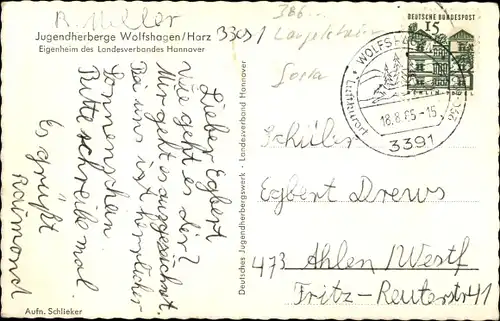 R. Müller
Jugendherberge Wolfshagen/Harz
Eigenheim des Landesverbandes Hannover
3391
Lieber Egbert
wie geht es dir?
Mir geht es ausgezeichnet.
Bei uns ist herrlicher
Sonnenschein.
Bitte schreibe mal.
Es grüßt
Raimond
Aufn. Schlieker
Deutsches Jugendherbergswerk · Landesverband Hannover
DEUTSCHE BUNDESPOST
15
BERLIN
WOLFSHAGEN
18.8.65-15
3391
Schüler
Egbert Drews
473 Ahlen / Westf
Fritz-Reuterstr 41